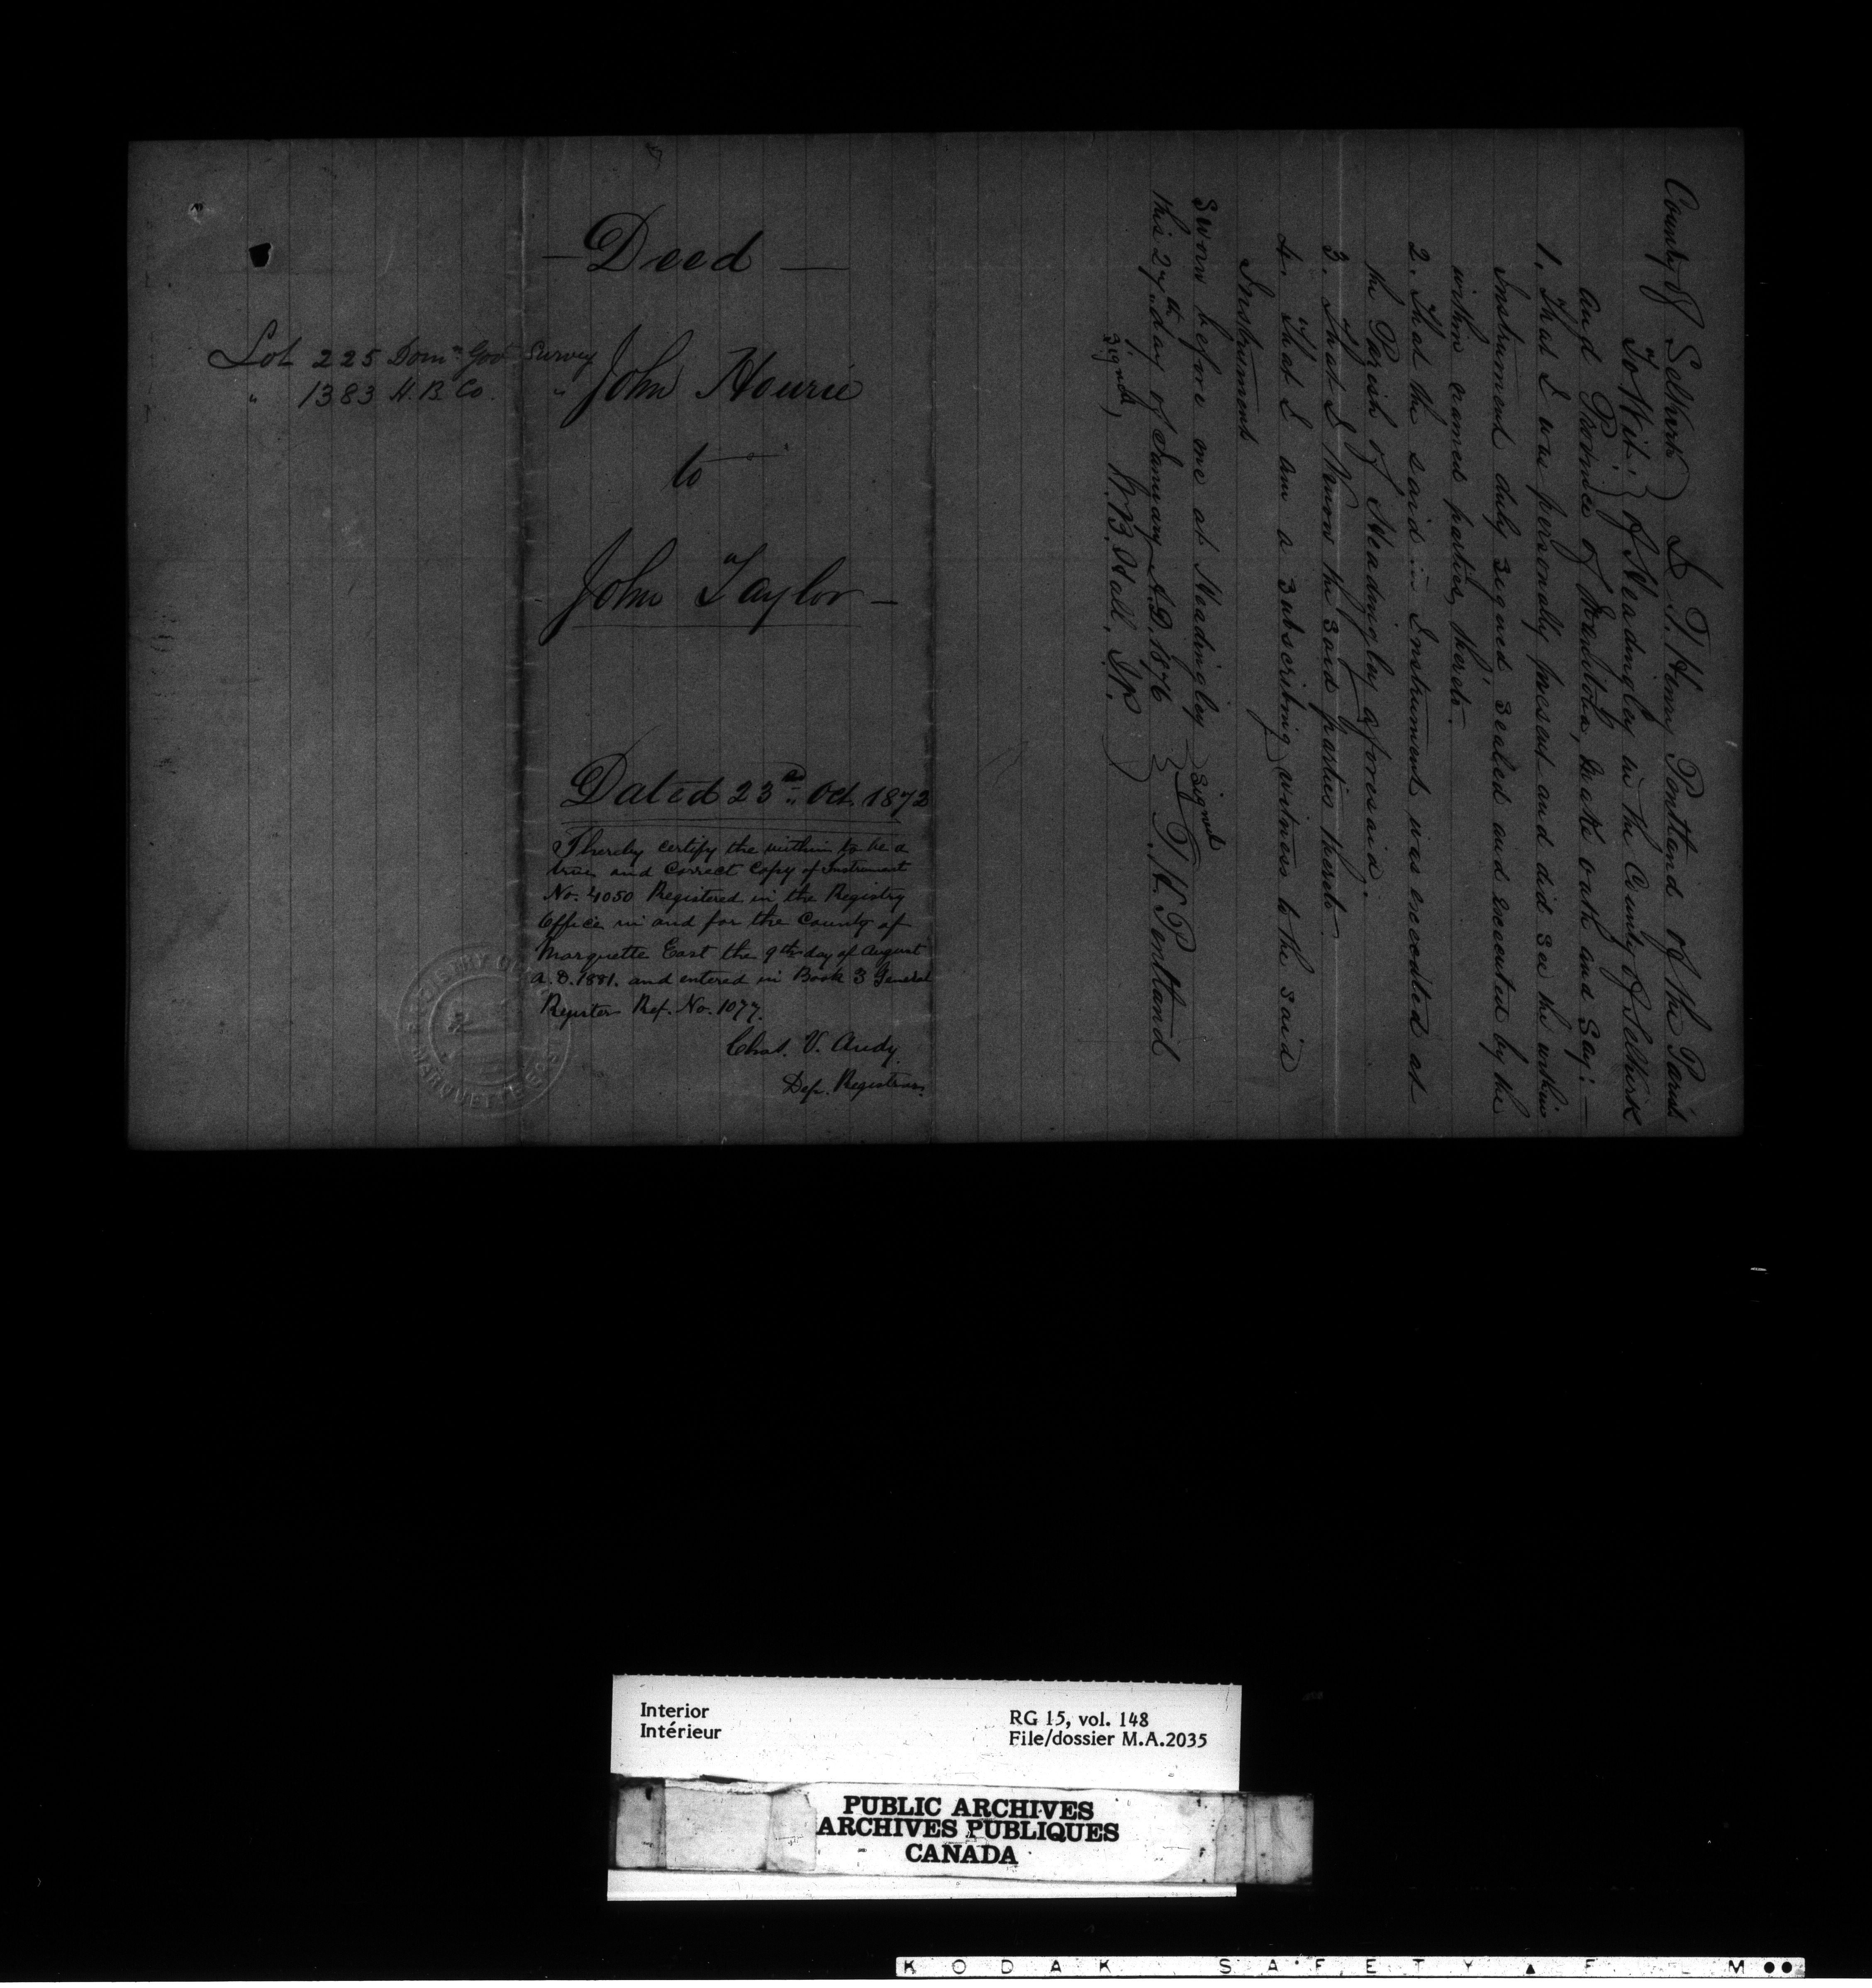 Lot 225 Domn Govt Survey
" 1383 H.B. Co. "
— Deed —
John Hourie
to
John Taylor —
Dated 23rd Oct. 1872
I hereby certify the within to be a
true and correct copy of Instrument
No. 4050 Registered in the Registry
Office in and for the County of
Marquette East the 9th day of August
A.D. 1881. and entered in Book 3 General
Register Ref. No. 1077.
Chas. V.
Dep. Registrar.
County of Selkirk } I T. Henry Pentland of the Parish
To Wit: } of Headingley in the County of Selkirk
and Province of Manitoba, make oath and say: —
1. That I was personally present and did see the within
Instrument duly signed sealed and executed by the
within named parties thereto.
2. That the said Instrument was executed at
the Parish of Headingley aforesaid.
3. That I know the said parties thereto
4. That I am a subscribing witness to the said
Instrument
Sworn before me at Headingley } Signed
this 27th day of January A.D. 1876 } T.H. Pentland
Signed, W.B. Hall. J.P. )
REGISTRY
MARQUETTE
Interior
Intérieur
RG 15, vol. 148
File/dossier M.A.2035
PUBLIC ARCHIVES
ARCHIVES PUBLIQUES
CANADA
KODAK SAFETY FILM